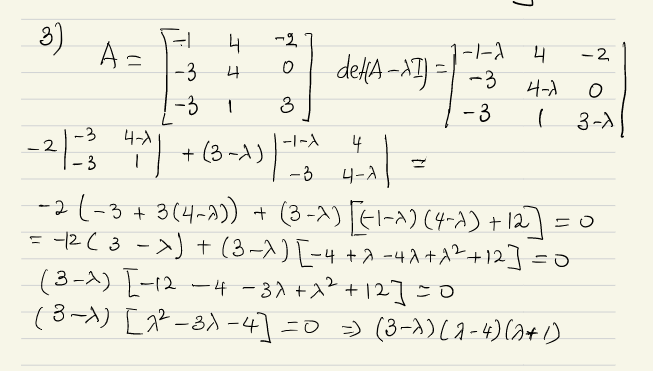 3) A = [-1 4 -2; -3 4 0; -3 1 3] det(A-λI) = |-1-λ 4 -2; -3 4-λ 0; -3 1 3-λ|
-2 |-3 4-λ; -3 1| + (3-λ) |-1-λ 4; -3 4-λ| =
-2 (-3 + 3(4-λ)) + (3-λ) [(-1-λ)(4-λ) + 12] = 0
= -12 ( 3 - λ) + (3-λ) [-4 + λ - 4λ + λ² + 12] = 0
(3-λ) [-12 - 4 - 3λ + λ² + 12] = 0
(3-λ) [λ² - 3λ - 4] = 0 ⇒ (3-λ)(λ-4)(λ+1)